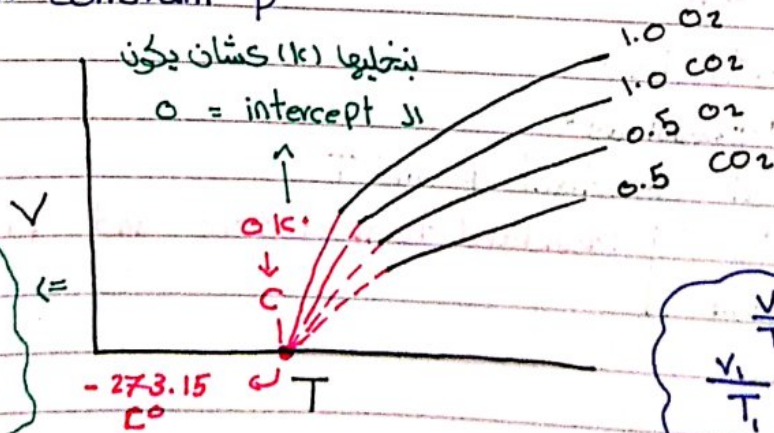 constant p
بنخليها (K) كشان يكون
ال intercept = 0
1.0 O2
1.0 CO2
0.5 O2
0.5 CO2
0 K°
C
V
<=
- 273.15
C°
T
V
T
V1
T1